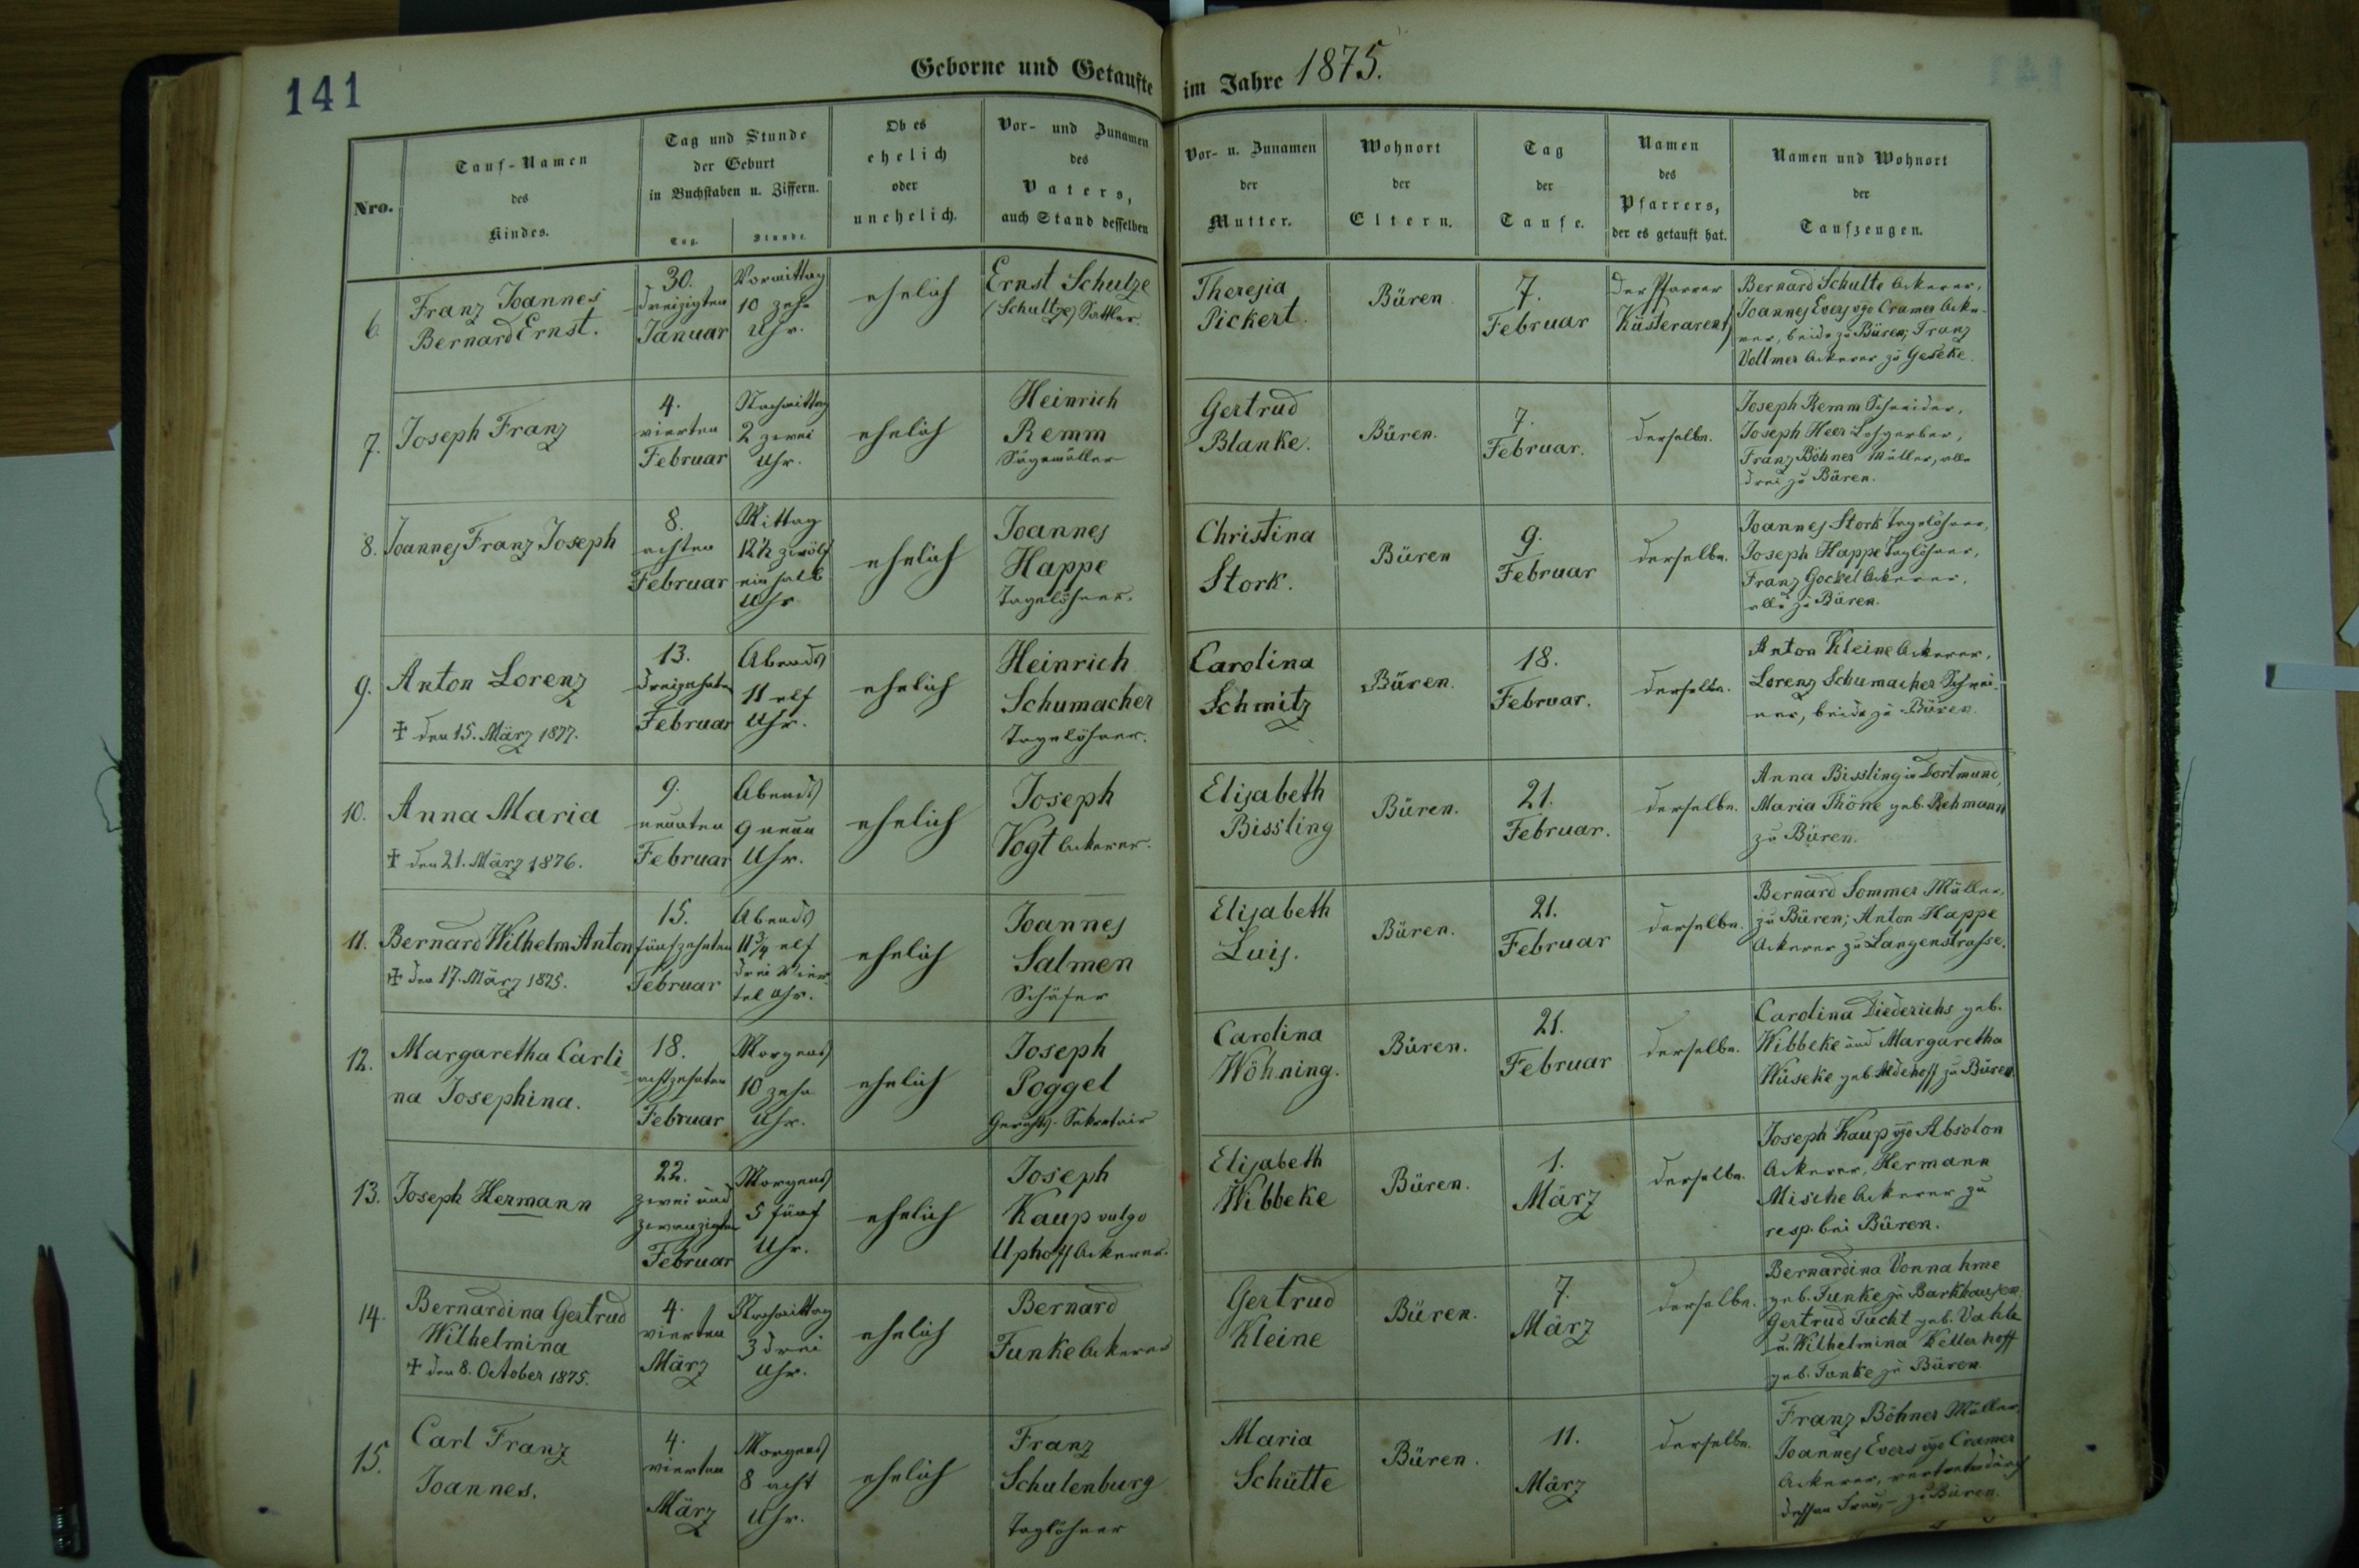 141
Geborne und Getaufte im Jahre 1875.
Nro.
Tauf-Namen
des
Kindes.
Tag und Stunde
der Geburt
in Buchstaben u. Ziffern.
Tag.
Stunde.
Ob es
ehelich
oder
unehelich.
Vor- und Zunamen
des
Vaters,
auch Stand desselben
Vor- u. Zunamen
der
Mutter.
Wohnort
der
Eltern.
Tag
der
Taufe.
Namen
des
Pfarrers,
der es getauft hat.
Namen und Wohnort
der
Taufzeugen.
6.
Franz Joannes
Bernard Ernst.
30.
dreizigten
Januar
Vormittag
10 zehn
Uhr.
ehelich
Ernst Schulze
(Schultze) Sattler.
Theresia
Pickert.
Büren
7.
Februar
Der Pfarrer
Küsterarent
Bernard Schulte Ackerer,
Joannes Evers vgo Cramer Acke-
rer, beide zu Büren; Franz
Vollmer Ackerer zu Geseke.
7.
Joseph Franz
4.
vierten
Februar
Nachmittag
2 zwei
Uhr.
ehelich
Heinrich
Remm
Sägemüller
Gertrud
Blanke.
Büren.
7.
Februar.
derselbe.
Joseph Remm Schneider,
Joseph Heer Lohgerber,
Franz Böhner Müller, alle
drei zu Büren.
8.
Joannes Franz Joseph
8.
achten
Februar
Mittag
12½ zwölf
ein halb
Uhr
ehelich
Joannes
Happe
Tagelöhner.
Christina
Stork.
Büren
9.
Februar
derselbe.
Joannes Stork Tagelöhner,
Joseph Happe Taglöhner,
Franz Gockel Ackerer,
alle zu Büren.
9.
Anton Lorenz
✝ den 15. März 1877.
13.
dreizehnten
Februar
Abends
11 elf
Uhr.
ehelich
Heinrich
Schumacher
Tagelöhner.
Carolina
Schmitz
Büren.
18.
Februar.
derselbe.
Anton Kleine Ackerer,
Lorenz Schumacher Schrei-
ner, beide zu Büren.
10.
Anna Maria
✝ den 21. März 1876.
9.
neunten
Februar
Abends
9 neun
Uhr.
ehelich
Joseph
Vogt Ackerer.
Elisabeth
Bissling
Büren.
21.
Februar.
derselbe.
Anna Bissling in Dortmund,
Maria Thöne geb. Rehmann
zu Büren.
11.
Bernard Wilhelm Anton
✝ den 17. März 1875.
15.
fünfzehnten
Februar
Abends
11¾ elf
drei Vier-
tel Uhr.
ehelich
Joannes
Salmen
Schäfer
Elisabeth
Luis.
Büren.
21.
Februar
derselbe.
Bernard Sommer Müller,
zu Büren; Anton Happe
Ackerer zu Langenstrasse.
12.
Margaretha Carli-
na Josephina.
18.
achtzehnten
Februar
Morgens
10 zehn
Uhr.
ehelich
Joseph
Poggel
Gerichts-Sekretair
Carolina
Wöhning.
Büren.
21.
Februar
derselbe.
Carolina Diederichs geb.
Wibbeke und Margaretha
Wüseke geb. Aldehoff zu Büren.
13.
Joseph Hermann
22.
zwei und
zwanzigsten
Februar
Morgens
5 fünf
Uhr.
ehelich
Joseph
Kaup vulgo
Uphoff Ackerer.
Elisabeth
Wibbeke
Büren.
1.
März
derselbe.
Joseph Kaup vgo Absolon
Ackerer, Hermann
Mische Ackerer zu
resp. bei Büren.
14.
Bernardina Gertrud
Wilhelmina
✝ den 8. October 1875.
4.
vierten
März
Nachmittag
3 drei
Uhr.
ehelich
Bernard
Funke Ackerer
Gertrud
Kleine
Büren.
7.
März
derselbe.
Bernardina Vonnahme
geb. Funke zu Barkhausen;
Gertrud Tucht geb. Vahle
u. Wilhelmina Kellerhoff
geb. Funke zu Büren
15.
Carl Franz
Joannes.
4.
vierten
März
Morgens
8 acht
Uhr.
ehelich
Franz
Schulenburg
Taglöhner
Maria
Schütte
Büren.
11.
März
derselbe.
Franz Böhner Müller,
Joannes Evers vgo Cramer
Ackerer, vertreten durch
dessen Frau, – zu Büren.